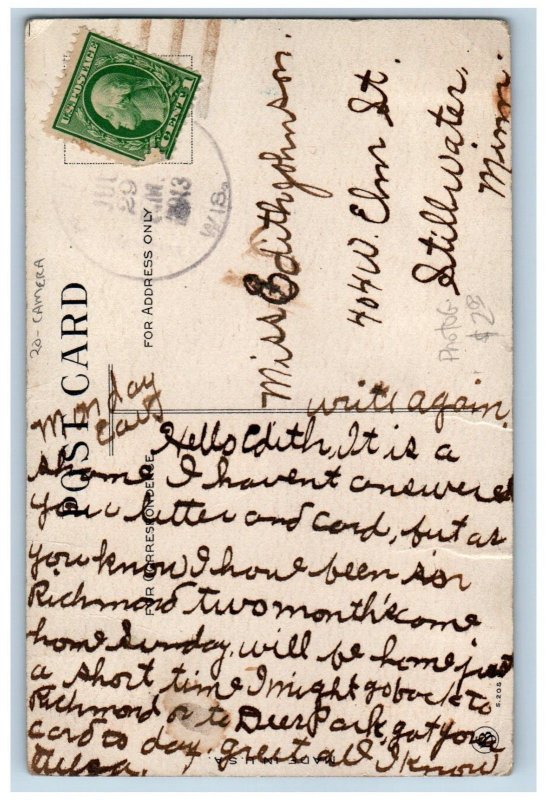 U.S. POSTAGE
1 CENT 1
JUL
29
1913
WIS.
POST CARD
FOR ADDRESS ONLY
FOR CORRESPONDENCE
20- CAMERA
Miss Edith Johnson.
404 W. Elm St.
Stillwater,
Minn.
PHOTOG
$2.00
Monday
write again.
Hello Edith, It is a
shame I havent answered
your letter and card, but as
you know I have been in
Richmond two month's come
home Sunday, will be home just
a short time I might go back to
Richmond or to Deer Park, got your
card to day, great all I know
Tulsa.
MADE IN U.S.A.
S. 205